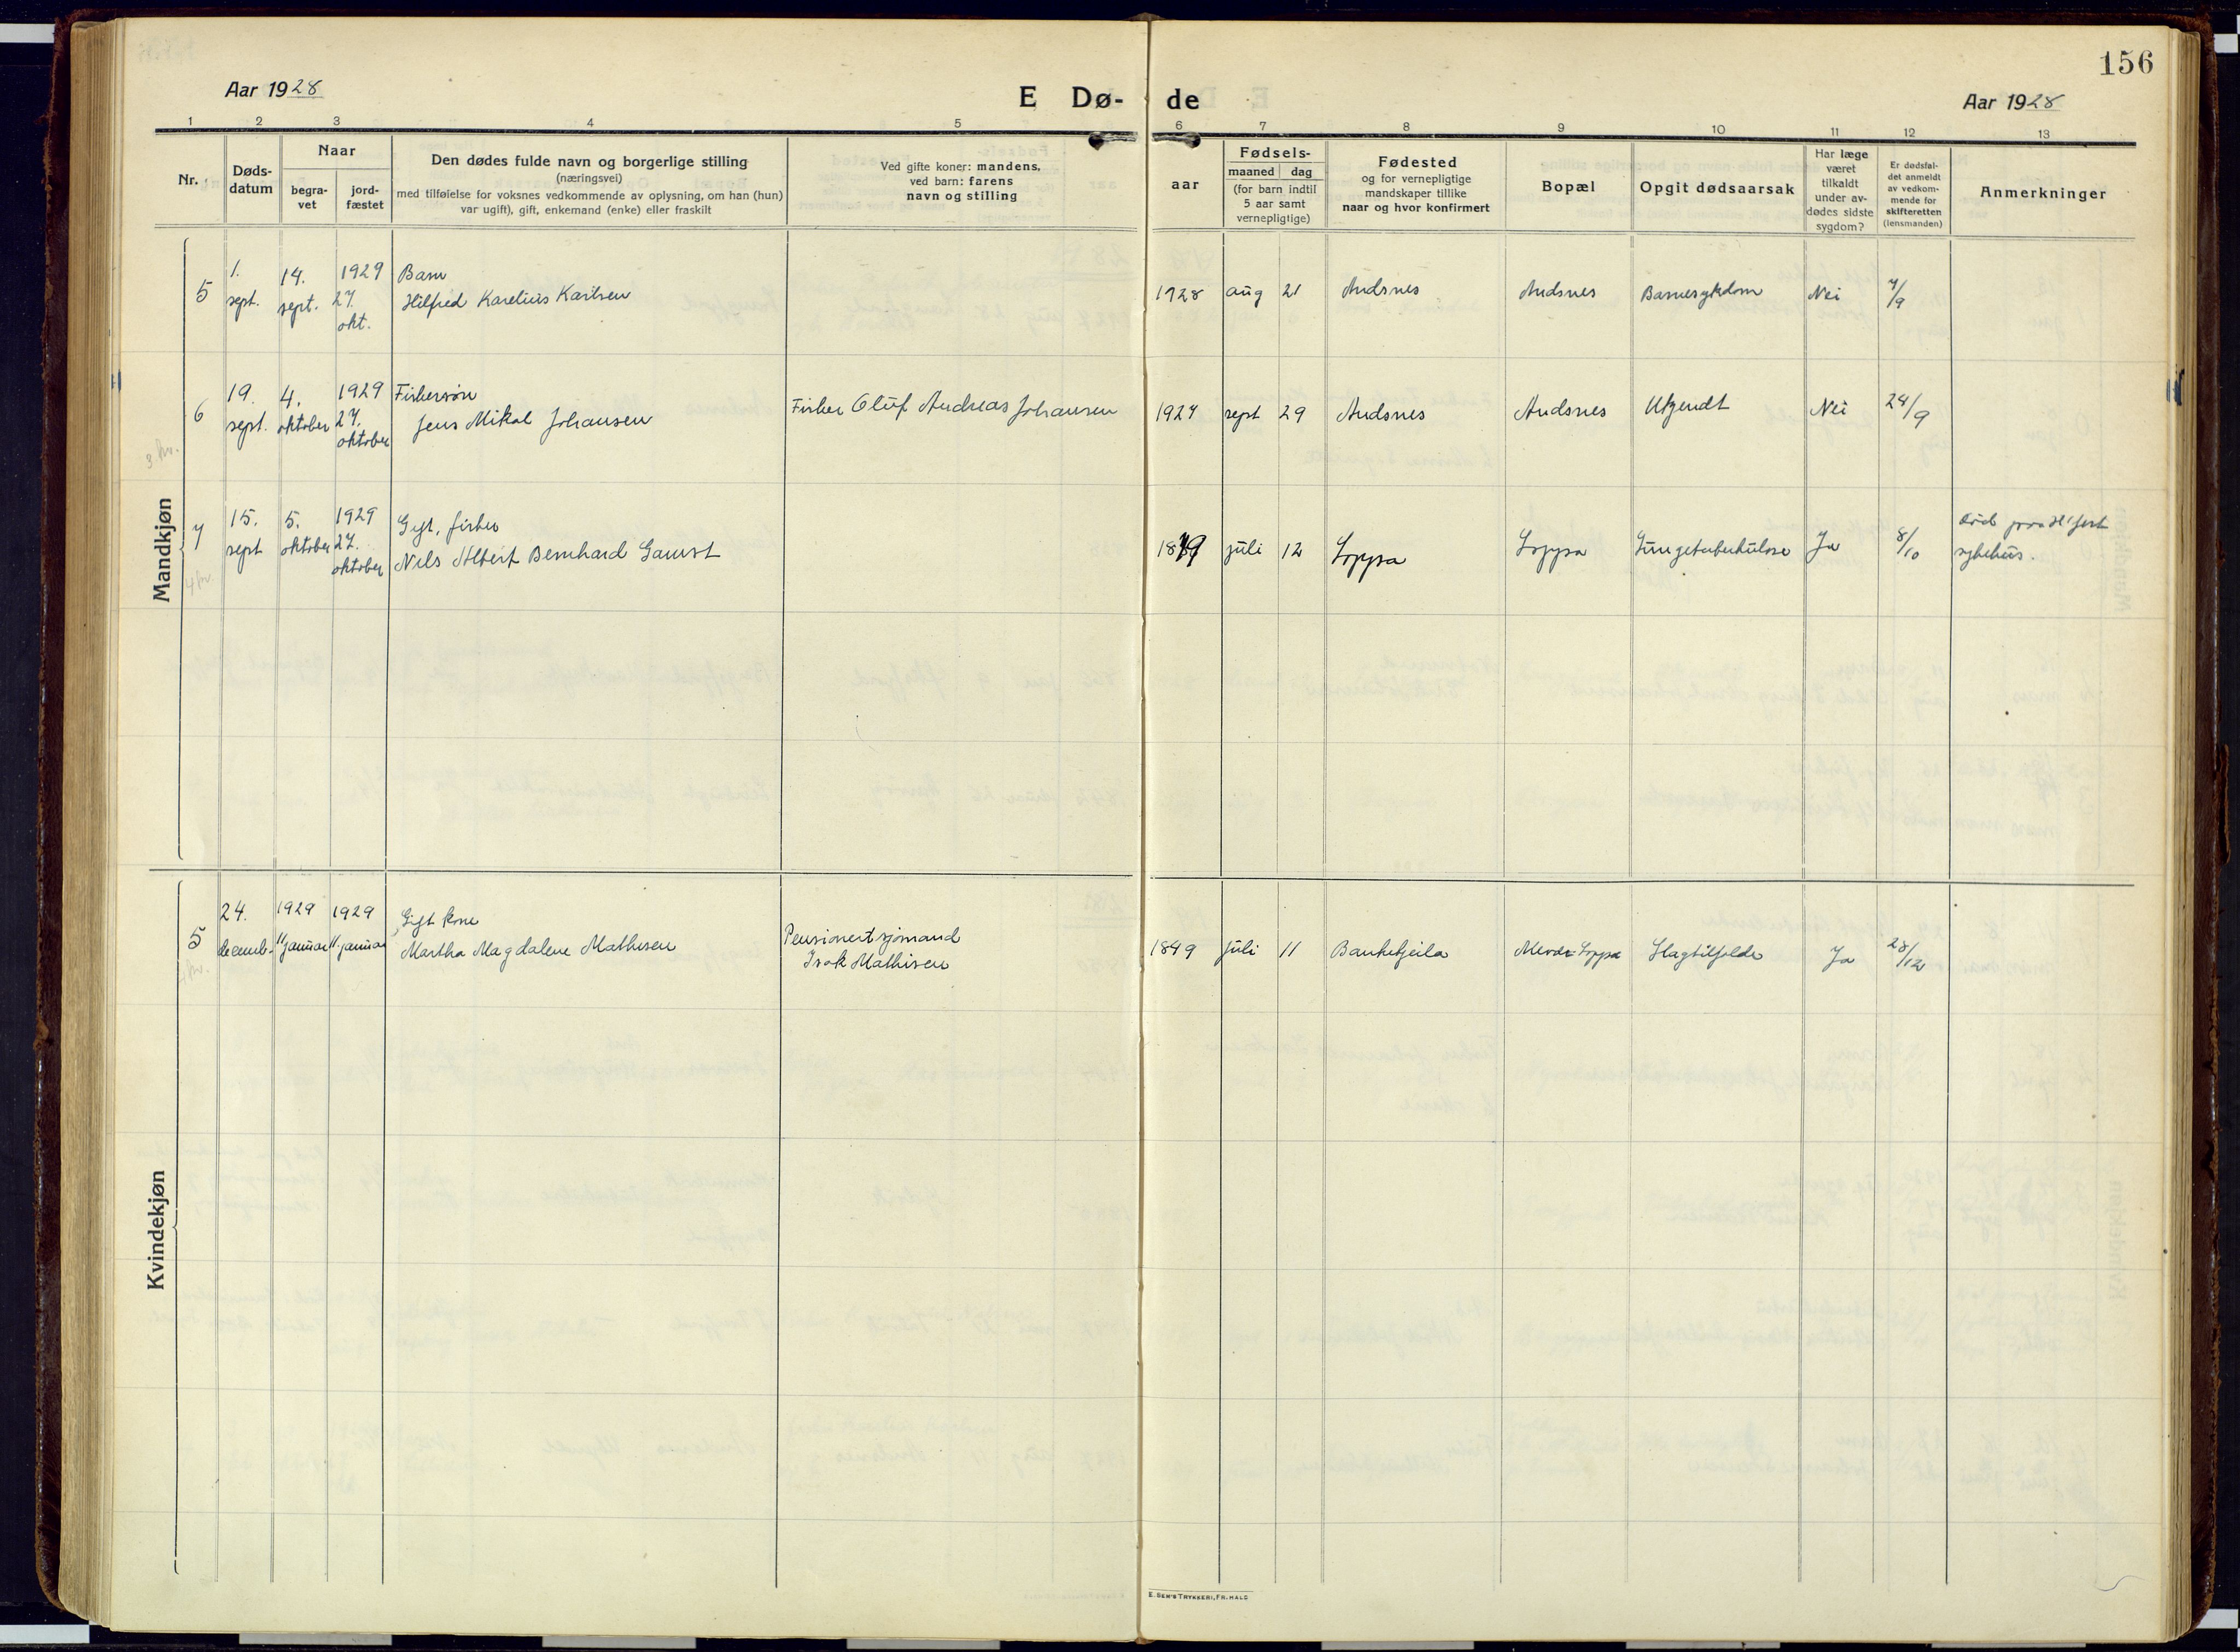 156
Aar 1928
E Dø- de
Aar 1928
1 2 3 4 5 6 7 8 9 10 11 12 13
Nr.
Døds-
datum
Naar
begra-
vet
jord-
fæstet
Den dødes fulde navn og borgerlige stilling
(næringsvei)
med tilføielse for voksnes vedkommende av oplysning, om han (hun)
var ugift), gift, enkemand (enke) eller fraskilt
Ved gifte koner: mandens,
ved barn: farens
navn og stilling
aar
Fødsels-
maaned dag
(for barn indtil
5 aar samt
vernepligtige)
Fødested
og for vernepligtige
mandskaper tillike
naar og hvor konfirmert
Bopæl
Opgit dødsaarsak
Har læge
været
tilkaldt
under av-
dødes sidste
sygdom?
Er dødsfal-
det anmeldt
av vedkom-
mende for
skifteretten
(lensmanden)
Anmerkninger
Mandkjøn
5
1.
sept.
14.
sept.
1929
27.
okt.
Barn
Hilfred Karelius Karlsen
1928 aug 21 Andsnes Andsnes Barnesykdom Nei 7/9
6
19.
sept.
4.
oktober
1929
27.
oktober
Fiskersøn
Jens Mikal Johansen
Fisker Oluf Andreas Johansen
1927 sept 29 Andsnes Andsnes Ukjendt Nei 24/9
7
15.
sept
5.
oktober
1929
27.
oktober
Gift, fisker
Nils Albert Bernhard Gamst
1879 juli 12 Loppa Loppa Lungetuberkulose Ja 8/10
sykehus.
Kvindekjøn
5
24.
decemb.
1929
11 januar
1929
11. januar
Gift kone
Martha Magdalene Mathisen
Pensionert sjømand
Isak Mathisen
1849 juli 11 Bankekjeila Loppa Slagtilfælde Ja 28/12
E. Sem's Trykkeri, Fr.hald